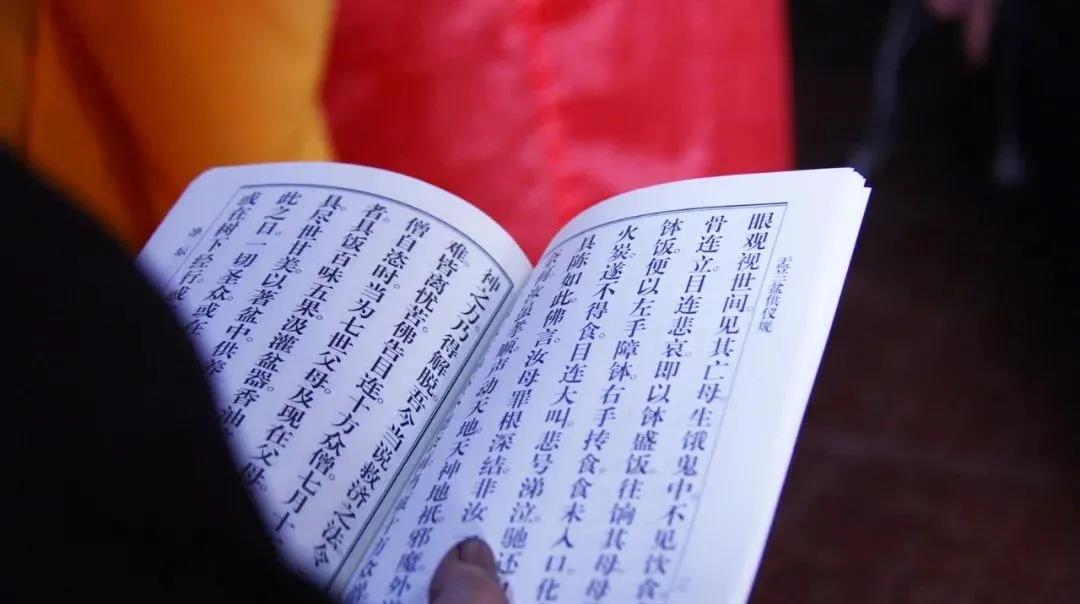 盂兰盆供仪规
眼观视世间。见其亡母生饿鬼中。不见饮食
骨连立。目连悲哀。即以钵盛饭。往饷其母。母
钵饭。便以左手障钵。右手抟食。食未入口。化
火炭。遂不得食。目连大叫。悲号涕泣。驰还
具陈如此。佛言。汝母罪根深结。非汝
声动天地。天神地祇。邪魔外
神之力。乃得解脱。吾今当说救济之法。令
难。皆离忧苦。佛告目连。十方众僧。七月十
僧自恣时。当为七世父母。及现在父母。
者。具饭百味五果。汲灌盆器。香油
具。尽世甘美。以著盆中。供养
此之日。一切圣众。或在
或在树下经行。或在